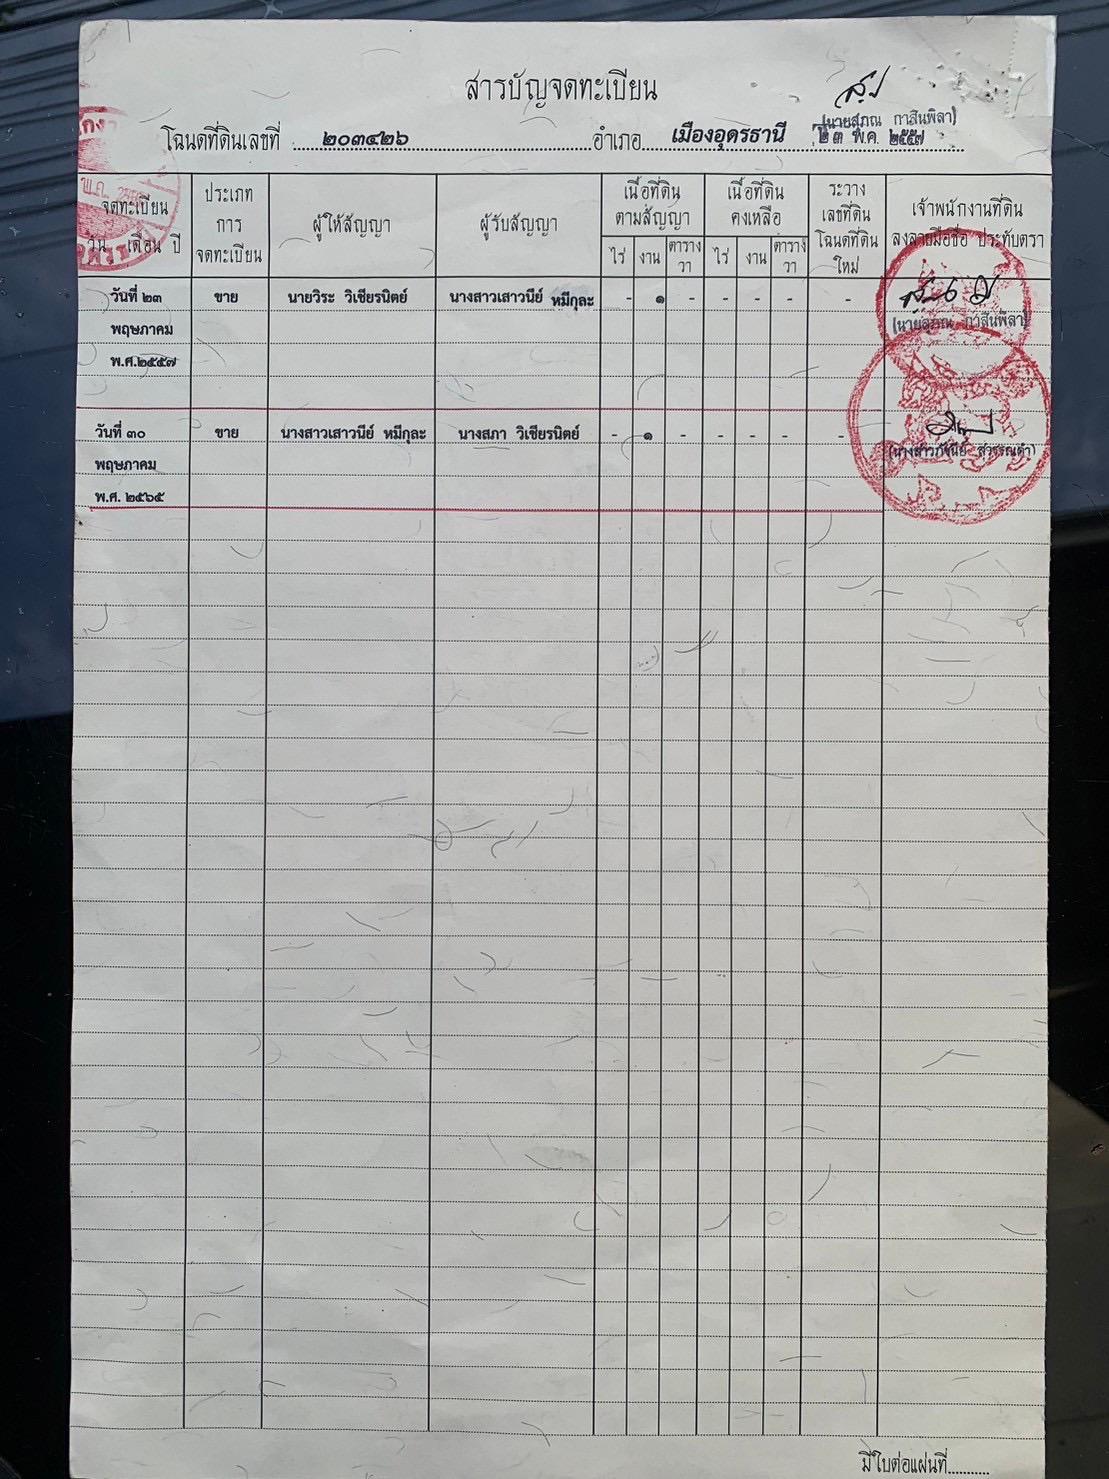 สารบัญจดทะเบียน
(นายสุภณ กาสินพิลา)
โฉนดที่ดินเลขที่ ๒๐๓๔๒๖ อำเภอ เมืองอุดรธานี ๒๓ พ.ค. ๒๕๕๗
จดทะเบียน วัน เดือน ปี
ประเภท การ จดทะเบียน
ผู้ให้สัญญา
ผู้รับสัญญา
เนื้อที่ดิน ตามสัญญา
ไร่ งาน ตาราง วา
เนื้อที่ดิน คงเหลือ
ไร่ งาน ตาราง วา
ระวาง เลขที่ดิน โฉนดที่ดิน ใหม่
เจ้าพนักงานที่ดิน ลงลายมือชื่อ ประทับตรา
วันที่ ๒๓ ขาย นายวิระ วิเชียรนิตย์ นางสาวเสาวนีย์ หมีกุละ - ๑ - - - - -
พฤษภาคม (นายสุภณ กาสินพิลา)
พ.ศ.๒๕๕๗
วันที่ ๓๐ ขาย นางสาวเสาวนีย์ หมีกุละ นางสภา วิเชียรนิตย์ - ๑ - - - - -
พฤษภาคม
พ.ศ. ๒๕๖๕
มีใบต่อแผ่นที่